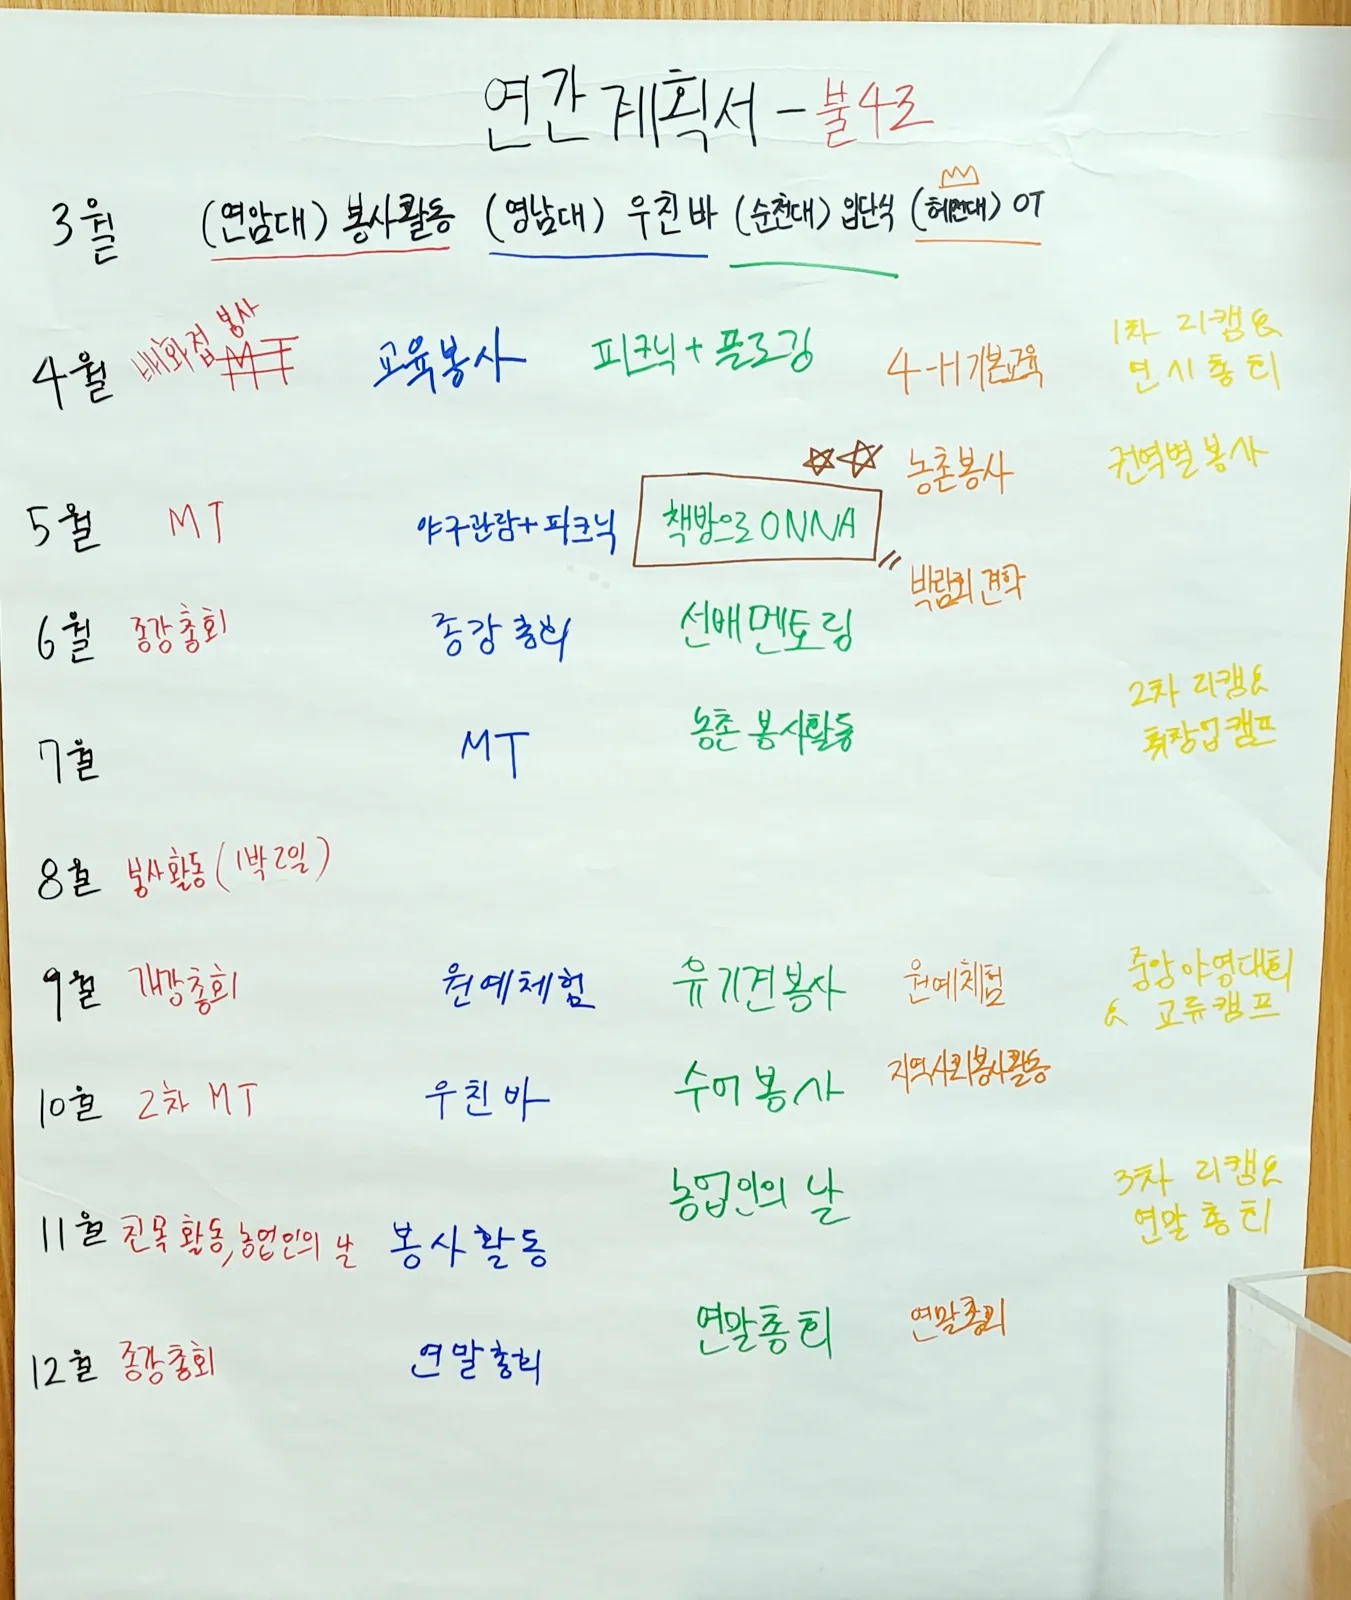 연간계획서 - 불4조
3월 (연암대) 봉사활동 (영남대) 우친바 (순천대) 입단식 (혜전대) OT
4월 배화접 봉사 교육봉사 피크닉 + 플로깅 4-H 기본교육 1차 리캠 &
연시총회
농촌봉사 권역별 봉사
5월 MT 야구관람 + 피크닉 책방으로 ONNA
박람회 견학
6월 종강총회 종강 총회 선배 멘토링
2차 리캠 &
취창업캠프
7월 MT 농촌 봉사활동
8월 봉사활동 (1박 2일)
9월 개강총회 원예체험 유기견봉사 원예체험 중앙야영대회
& 교류캠프
10월 2차 MT 우친바 수어봉사 지역사회봉사활동
11월 친목 활동, 농업인의 날 봉사 활동 농업인의 날 3차 리캠 &
연말총회
12월 종강총회 연말총회 연말총회 연말총회